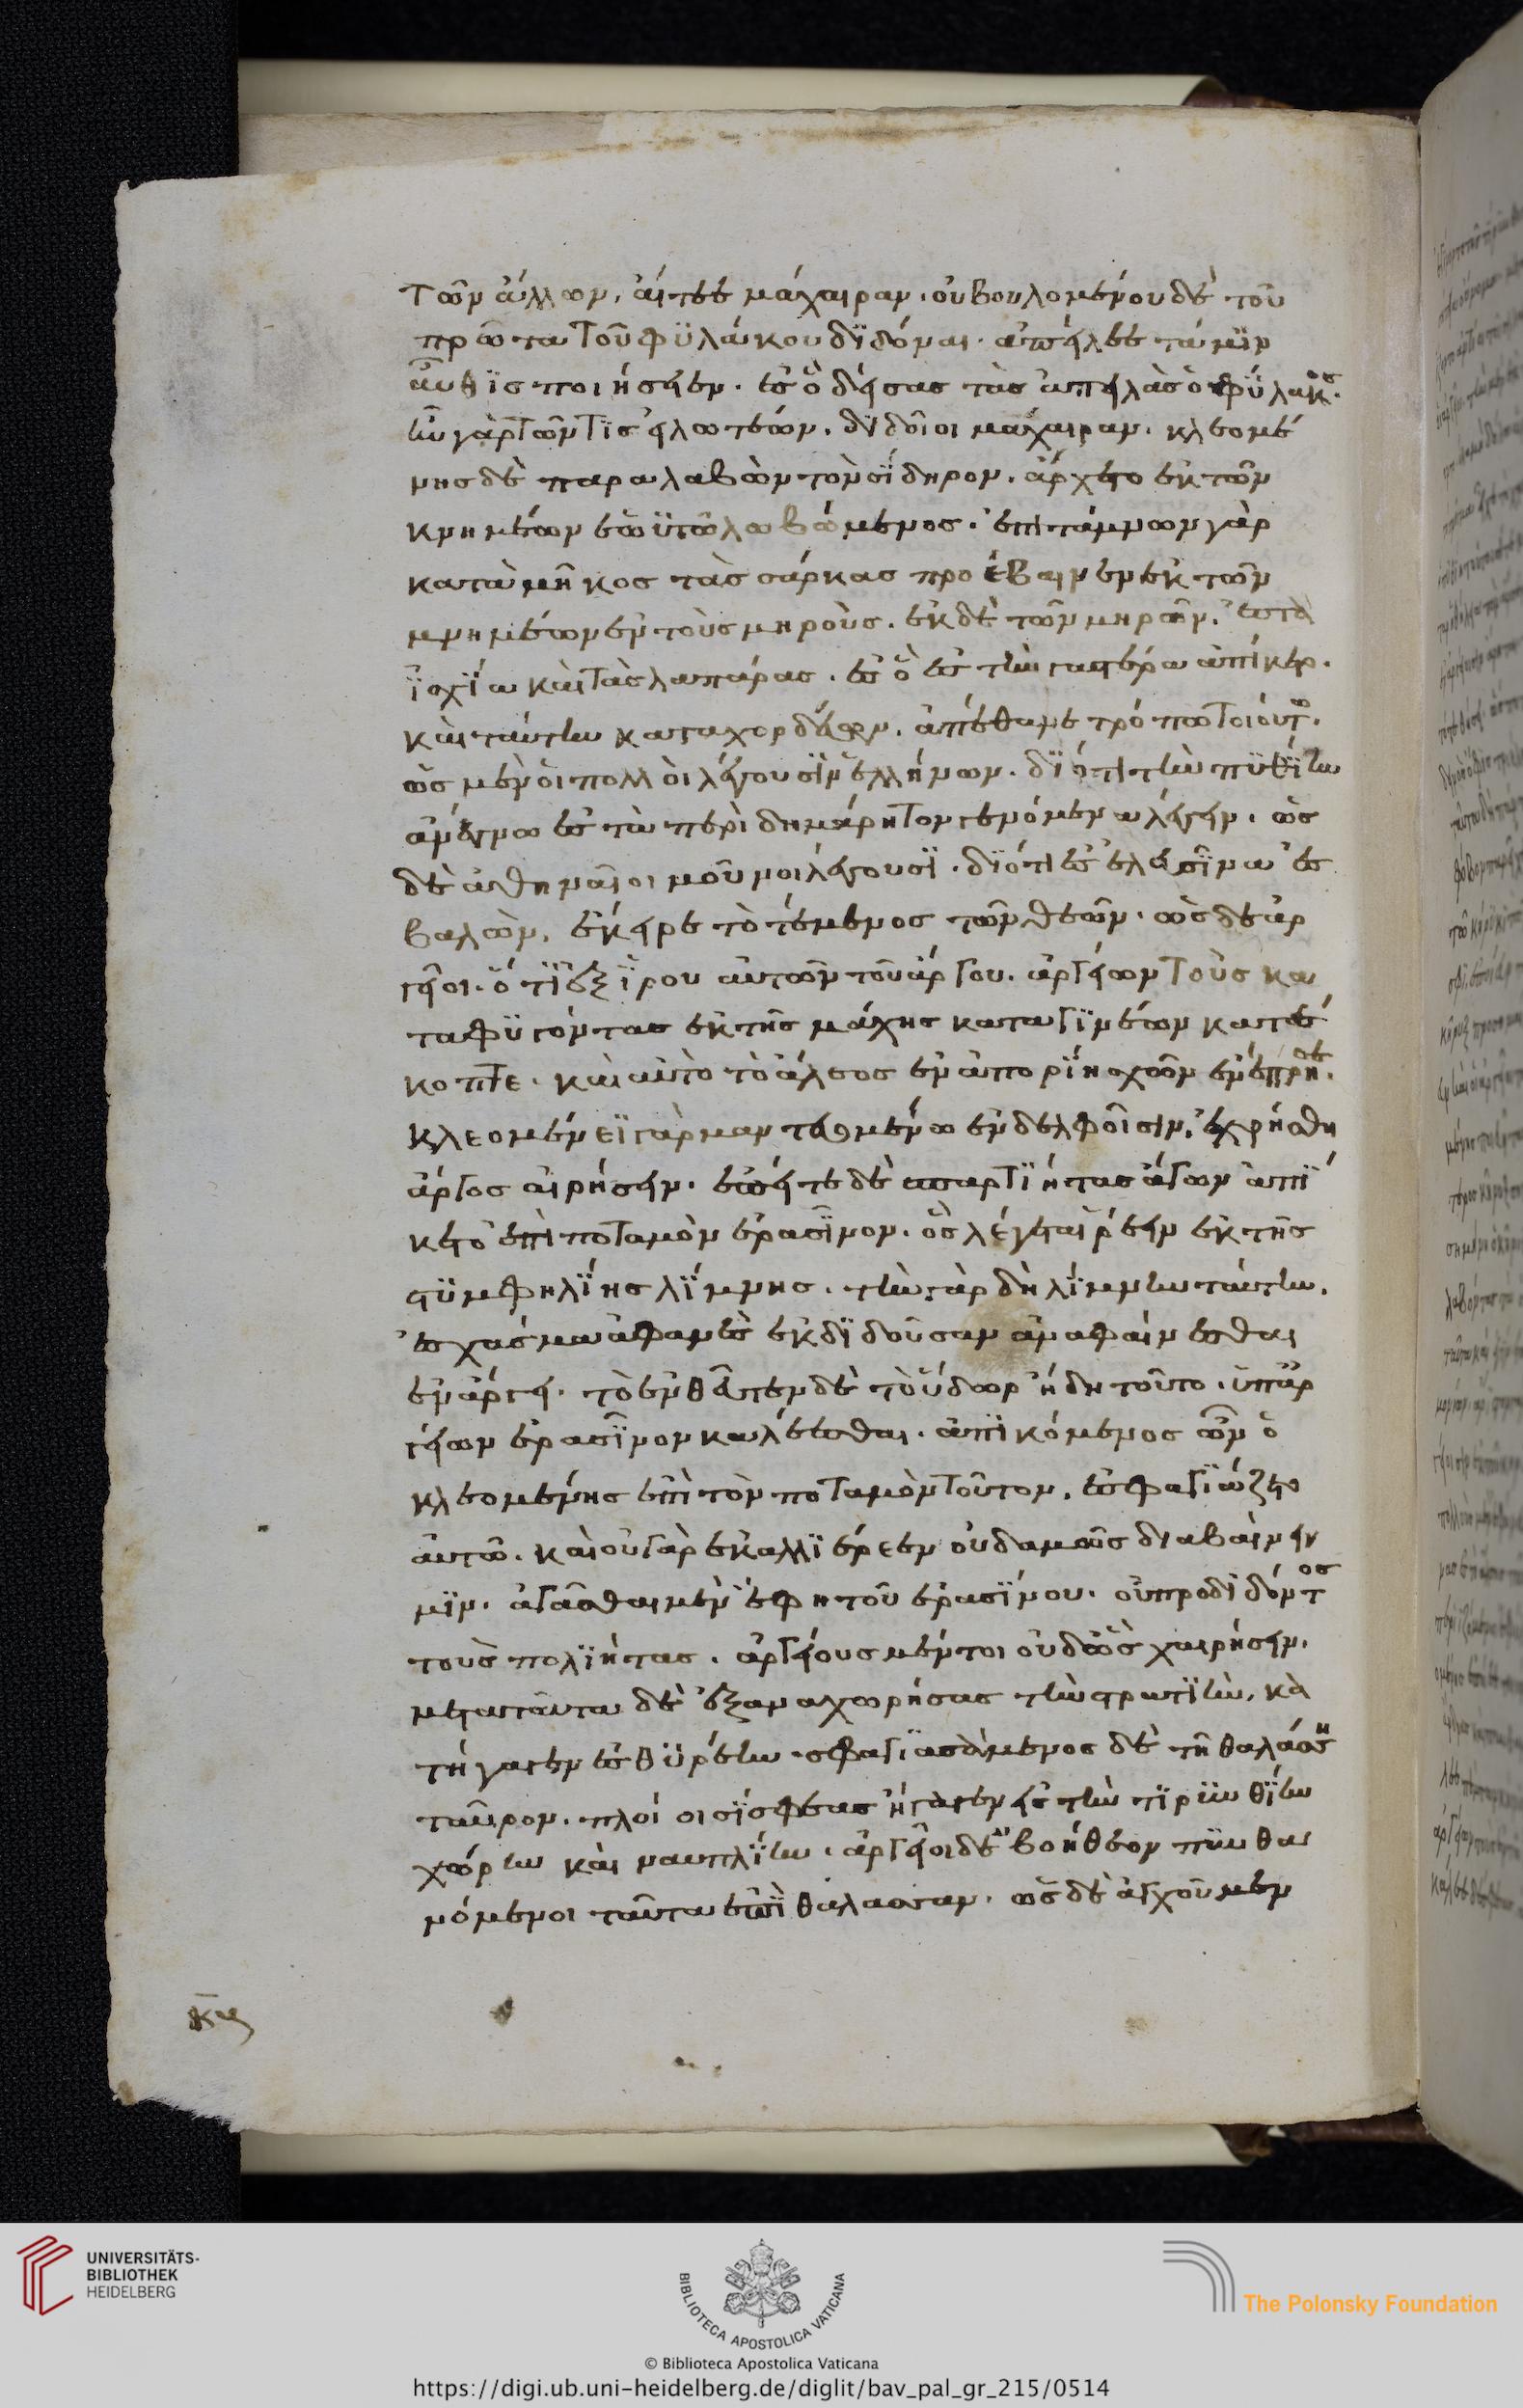 τῶν ἄλλων, αἴτεε μάχαιραν. οὐ βουλομένου δὲ τοῦ
πρῶτα τοῦ φϋλάκου δϊδόναι. ἀπείλεε τά μϊν
αὖθϊς ποιήσειεν. ἐς ὃ δείσας τὰς ἀπειλὰς ὁ φΰλακος.
ἦν γὰρ τῶν τϊς εἱλωτέων. δϊδοῖ οἱ μάχαιραν. κλεομέ
νης δὲ παραλαβὼν τὸν σΐδηρον. ἄρχετο ἐκ τῶν
κνημέων ἑωϋτὸν λωβώμενος. ἐπιτάμνων γὰρ
κατὰ μῆκος τὰς σάρκας προέβαινεν ἐκ τῶν
κνημέων ἐν τοὺς μηρούς. ἐκ δὲ τῶν μηρῶν. ἔς τὰ
ϊσχΐα καὶ τὰς λαπάρας. ἐς ὃ ἐς τὴν γαστέρα ἀπίκετο.
καὶ ταύτην καταχορδεύων. ἀπέθανε τρόπῳ τοιούτῳ.
ὡς μὲν οἱ πολλοὶ λέγουσϊν ἑλλήνων. δϊότι τὴν πϋθΐην
ἀνέγνω ἐς τὰ περὶ δημάρητον γενόμενα λέγειν. ὡς
δὲ ἀθηναῖοι μοῦνοι λέγουσϊ. δϊότι ἐς ἐλευσῖνα ἐς
βαλὼν, ἔκειρε τὸ τέμενος τῶν θεῶν. ὡς δὲ ἀρ
γεῖοι. ὅτϊ ἐξ ϊροῦ αὐτῶν τοῦ ἄργου. ἀργείων τοὺς κα
ταφϋγόντας ἐκ τῆς μάχης καταγϊνέων κατέ
κοπτε. καὶ αὐτὸ τὸ ἄλσος ἐν ἀπορΐη σχὼν ἐνέπρησε.
κλεομένεϊ γὰρ μαντευομένῳ ἐν δελφοῖσιν. ἐχρήσθη
ἄργος αἱρήσειν. ἐπείτε δὲ σπαρτϊήτας ἄγων ἀπΐ
κετο ἐπὶ ποταμὸν ἐρασῖνον. ὃς λέγεται ῥέειν ἐκ τῆς
στϋμφηλΐης λΐμνης. τὴν γὰρ δὴ λΐμνην ταύτην.
ἐς χάσμα ἀφανὲς ἐκδϊδοῦσαν ἀναφαίνεσθαι
ἐν ἄργει. τὸ ἐνθεῦτεν δὲ τὸ ὕδωρ ἤδη τοῦτο. ὑπ' ἀρ
γείων ἐρασῖνον καλέεσθαι. ἀπϊκόμενος ὦν ὁ
κλεομένης ἐπὶ τὸν ποταμὸν τοῦτον. ἐσφαγϊάζετο
αὐτῷ. καὶ οὐ γὰρ ἐκαλλϊέρεεν οὐδαμῶς διαβαίνειν
μϊν. ἄγασθαι μὲν ἔφη τοῦ ἐρασΐνου. οὐ προδϊδόντος
τοὺς πολϊήτας. ἀργείους μέντοι οὐδ' ὣς χαιρήσειν.
μετὰ ταῦτα δὲ ἐξαναχωρήσας τὴν στρατϊὴν. κα
τήγαγεν ἐς θϋρέην. σφαγϊασάμενος δὲ τῇ θαλάσσῃ
ταῦρον. πλοίοισΐ σφεας ἤγαγεν ἐς τὴν τϊρϋνθΐην
χώρην καὶ ναυπλΐην. ἀργεῖοι δὲ ἐβοήθεον πϋνθα
νόμενοι ταῦτα ἐπὶ θάλασσαν. ὡς δὲ ἀγχοῦ μὲν
UNIVERSITÄTS-
BIBLIOTHEK
HEIDELBERG
BIBLIOTECA APOSTOLICA VATICANA
The Polonsky Foundation
© Biblioteca Apostolica Vaticana
https://digi.ub.uni-heidelberg.de/diglit/bav_pal_gr_215/0514